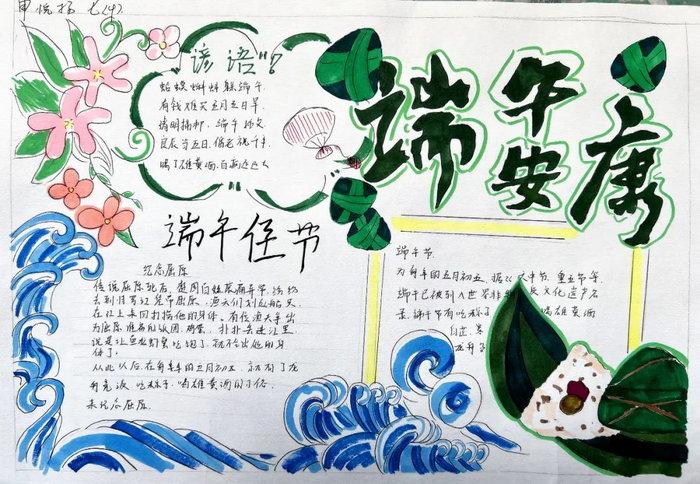 申悦扬 七(4)
谚语"?
蛤蟆蝌蚪躲端午
有钱难买五月五日旱
清明插柳，端午插艾
良辰当五日，偕老祝千年
喝了雄黄酒，百病远远丢
端午安康
端午佳节
纪念屈原
传说屈原死后，楚国百姓哀痛异常，纷纷
去到汨罗江凭吊屈原，渔夫们划起船只
在江上来回打捞他的身体。有位渔夫拿出
为屈原准备的饭团、鸡蛋，扑扑丢进江里
说是让鱼龙虾蟹吃饱了，就不会出他的身
体了。
从此以后，在每年的五月初五，就有了龙
舟竞渡、吃粽子、喝雄黄酒的习俗
来纪念屈原。
端午节
为每年的五月初五，据《 午节、重五节等，
端午已被列入世界非 质文化遗产名
录，端午节有吃粽子 喝雄黄酒